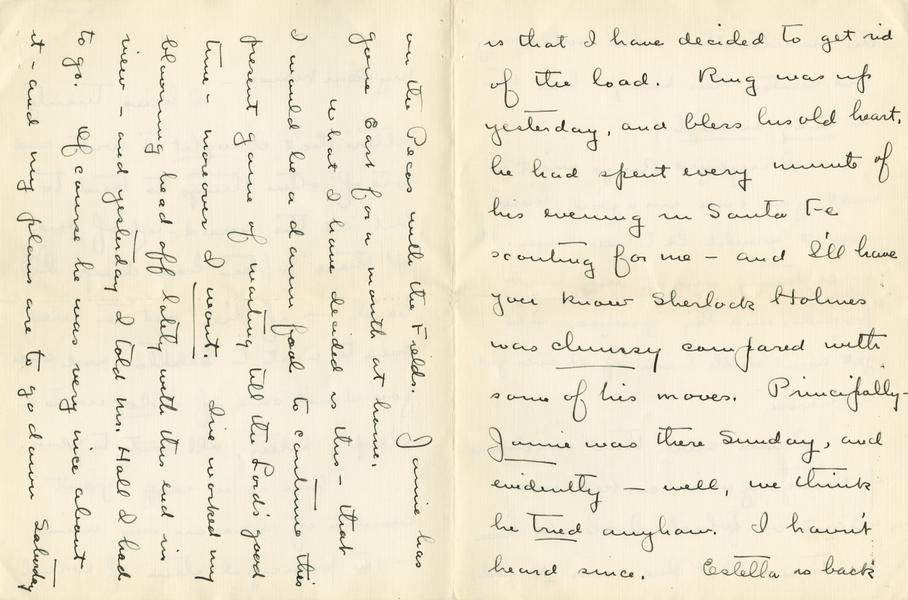 is that I have decided to get rid
of the load. Ring was up
yesterday, and bless his old heart,
he had spent every minute of
his evening in Santa Fe
scouting for me - and I'll have
you know Sherlock Holmes
was clumsy compared with
some of his moves. Principally-
Jamie was there Sunday, and
evidently - well, we think
he tried anyhow. I havn't
heard since. Estella is back
on the Pecos with the Fields. Jamie has
gone East for a month at home.
What I have decided is this - that
I would be a damn fool to continue this
present game of waiting till the Lord's good
time - moreover I wont. I've worked my
blooming head off lately with this end in
view - and yesterday I told Mr. Hall I had
to go. Of course he was very nice about
it - and my plans are to go down Saturday